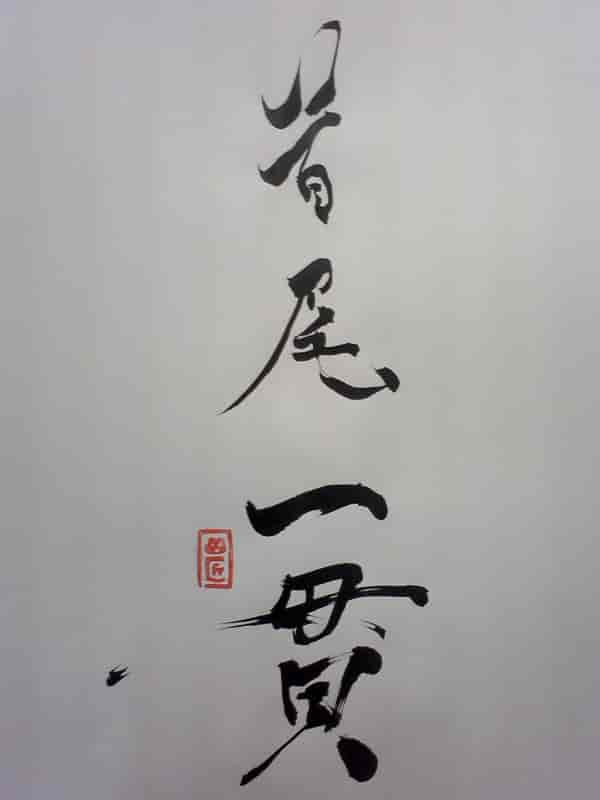 首尾一貫